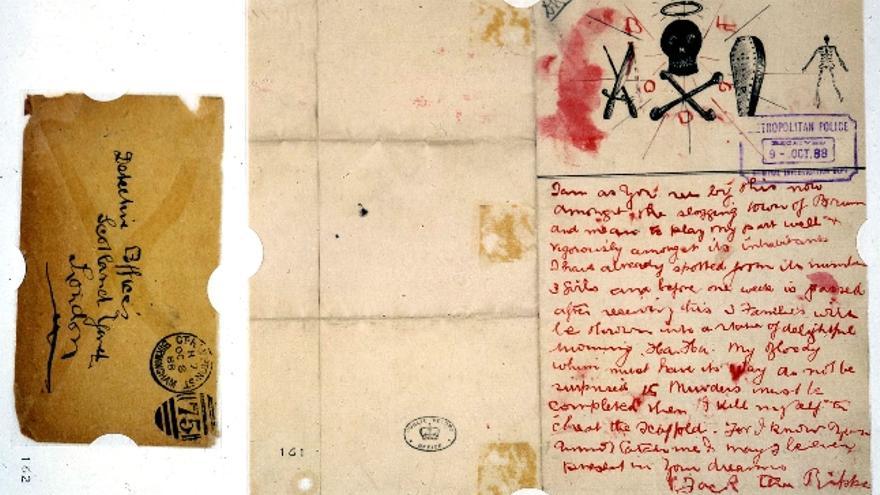 Detective Offices
Scotland Yard
London
BIRMINGHAM
OC 8
88
75
162
161
PUBLIC RECORD
OFFICE
METROPOLITAN POLICE
RECEIVED
9-OCT.88
CRIMINAL INVESTIGATION DEPT
I am as you see by this now
amongst the slogging town of Brum
and mean to play my part well &
vigorously amongst its inhabitants
I have already spotted from its number
3 girls and before one week is passed
after receiving this 3 Families will
be thrown into a state of delightful
mourning. Ha. Ha. My Bloody
whim must have its way do not be
surprised 15 Murders must be
completed then I kill myself to
cheat the Scaffold. For I know you
cannot catch me & I may be even
present in your dreams
Jack the Ripper